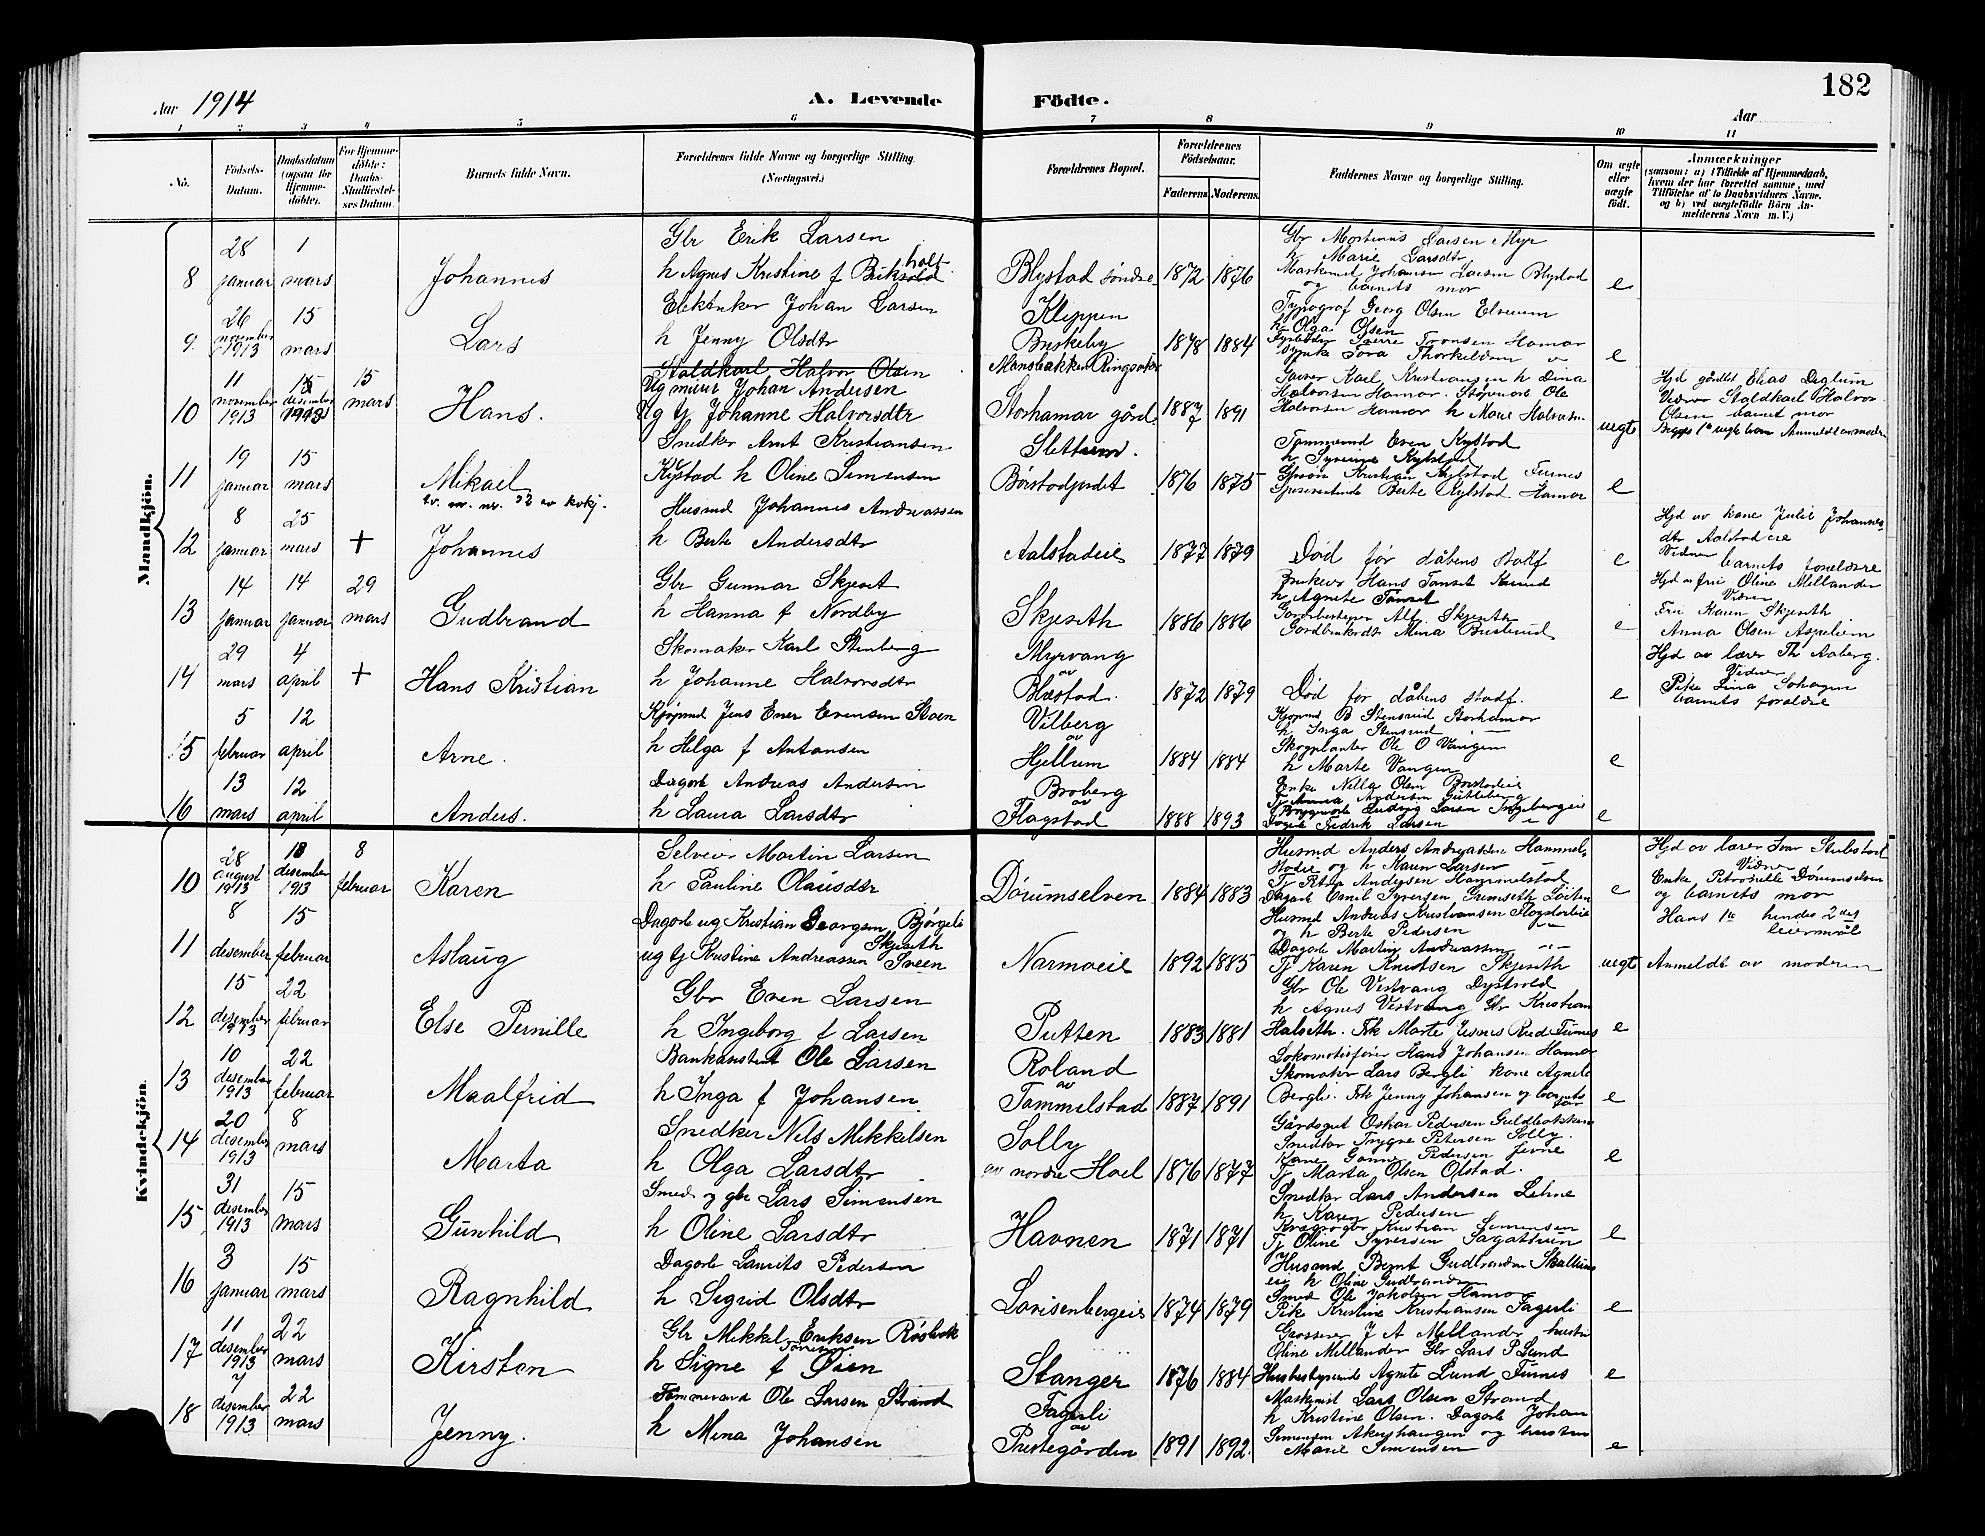 182
Aar 1914
A. Levende Födte.
Aar
1 2 3 4 5 6 7 8 9 10 11
No.
Födsels-Datum.
Daabsdatum (ogsaa for Hjemmedöbte).
For Hjemmedöbte: Daabs-Stadfæstelsens Datum.
Barnets fulde Navn.
Forældrenes fulde Navne og borgerlige Stilling. (Næringsvei.)
Forældrenes Bopæl.
Forældrenes Födselsaar.
Faderens Moderens.
Faddernes Navne og borgerlige Stilling.
Om ægte eller uægte födt.
Anmærkninger
(saasom: a) i Tilfælde af Hjemmedaab, hvem der har forrettet samme, med Tilföielse af to Daabsvidners Navne, og b) ved uægtefödte Börn Anmelderens Navn m. V.)
Mandkjön.
8 28 januar 1 mars Johannes
Gbr Erik Larsen
h Agnes Kristine f
Blystad søndre 1872 1876
Gbr Martinus Larsen Myr
h Marie Larsdtr
Johansen Larsen Blystad
og barnets mor e
9 26 november 1913 15 mars Lars
Johan Larsen
h Jenny Olsdtr
Kleppen Buskeby 1878 1884
Typograf Georg Olsen Elverum
h Olga Olsen
Sverre Tronsen Hamar
Tora e
10 11 november 1913 15 desember 1913 15 mars Hans.
Staldkarl Halvor Olsen
Ug murer Johan Andersen
Ug tj Johanne Halvorsdtr
Mansbakken Ringsaker
Storhamar gård 1887 1891
Karl Kristiansen h Dina
Halvorsen Hamar. Ole
Halvorsen Hamar h Marie Halvorsen uegte
Hjd Elias Deglum
Vidner Staldkarl Halvor
Olsen barnet mor
Begges 1ste uegte barn Anmeldt av moder
11 19 januar 15 mars Mikael
tv. m. nr. 32 av kvkj.
Snedker Arnt Kristiansen
Kystad h Oline Simensen
Slettum. Børstadjordet 1876 1875
Tømmermd Even Kystad
h Syrine Kylstad
Kristian Kylstad Furnes
Berte Kylstad Hamar e
12 8 januar 25 mars + Johannes
Husmd Johannes Andreassen
h Berte Andersdtr
Aalstadeie 1877 1879
Død før dåbens stadf e
Hjd av kone Julie Johannesdtr Aalstadeie
Vidner barnets forældre
13 14 januar 14 januar 29 mars Gudbrand
Gbr Gunnar Skjeset
h Hanna f Nordby
Skjeseth 1886 1886
Hans Tomset
h Agnete Tomset
Alf. Skjeseth
Mina e
Hjd av fru Oline Millander
Vidner
Fru Karen Skjeseth
Anna Olsen Aspelien
14 29 mars 4 april + Hans Kristian
Skomaker Karl Stenberg
h Johanne Halvorsdtr
Myrvang av Blæstad. 1872 1879
Død før dåbens stadf. e
Hjd av lærer Th Aaberg.
Vidner
Pike Lina
barnets foraldre
15 5 februar 12 april Arne.
Kjøpmd Jens Ener Evensen Stoen
h Helga f Antonsen
Vilberg av Hjellum 1884 1884
Kjøpmd B Stensrud Storhamar
h Inga Stensrud
Skogplanter Ole O Vangen
h Marte Vangen e
16 13 mars 12 april Anders.
Dagarb Andreas Andersen
h Laura Larsdtr
Broberg av Flagstad 1888 1893
Enke Nilla Olsen Børstadeie
Tj Anna Andersen
Ludvig Larsen
Dagarb Fredrik Larsen e
Kvindekjön.
10 28 august 1913 18 desember 1913 8 februar Karen
Selveier Martin Larsen
h Pauline Olausdtr
Dørumselven 1884 1883
Husmd Anders Andreassen Hammelstadeie og h Karen Larsen
Tj Peter Andersen Hammelstad
Dagarb Emil Syversen Løiten e
Hjd av lærer Ivar Stubstad
Vidner
Enke Petronille Dørumselven
og barnets mor
11 8 desember 15 februar Aslaug
Dagarb ug Kristian Georgsen Bjørgeli
ug tj Kristine Andreassen Skjeseth Sveen
Narmoeie 1892 1885
Husmd Andreas Kristiansen
og h Berte Pedersen
Dagarb Martin Andreassen
Tj Karen Knutsen Skjeseth uegte
Hans 1ste hendes 2det leiermål
Anmeldt av moderen
12 15 desember 1913 22 februar Else Pernille
Gbr Even Larsen
h Ingeborg f Larsen
Putten 1883 1881
Gbr Ole Vestvang Dystvold
h Agnes Vestvang Gbr Kristian
Halseth. Frk Marte Furnes e
13 10 desember 1913 22 februar Maalfrid
Bankassistent Ole Larsen
h Inga f Johansen
Roland av Tommelstad 1887 1891
Lokomotivfører Hans Johansen Hamar
Skomaker Lars Bergli kone Agnete
Bergli. Frk Jenny Johansen og barnets far e
14 20 desember 1913 8 mars Marta
Snedker Nils Mikkelsen
h Olga Larsdtr
Solly av nordre Hoel 1876 1877
Gårdsgut Oskar Pedersen
Snedker Trygve Petersen Solly.
Kone Pedersen
Tj Marta Olsen Olstad. e
15 31 desember 1913 15 mars Gunhild
Smed og gbr Lars Simensen
h Oline Larsdtr
Havnen 1871 1871
Snedker Lars Andersen Lehne
h Karen Pedersen
Kristian Simensen
Tj Oline Syversen e
16 3 januar 15 mars Ragnhild
Dagarb Laurits Pedersen
h Sigrid Olsdtr
Lovisenbergeie 1874 1879
Husmd Bernt Gudbrandsen
h Oline Gudbrandsen
Smed Ole Hamar
Pike Kristine Kristiansen Fagerli e
17 11 desember 1913 22 mars Kirsten
Gbr Mikkel Eriksen
h Signe f Øien
Stanger 1876 1884
J A Millander hustru
Oline Millander Gbr Lars P Lund
Husbestyrende Agnete Lund Furnes e
18 7 desember 1913 22 mars Jenny.
Tømmermand Ole Larsen Strand
h Mina Johansen
Fagerli av Prestegården 1891 1892.
Maskinist Lars Olsen Strand
h Kristine Olsen. Dagarb Johan
Simensen Akershaugen og hustru
Marie Simensen e